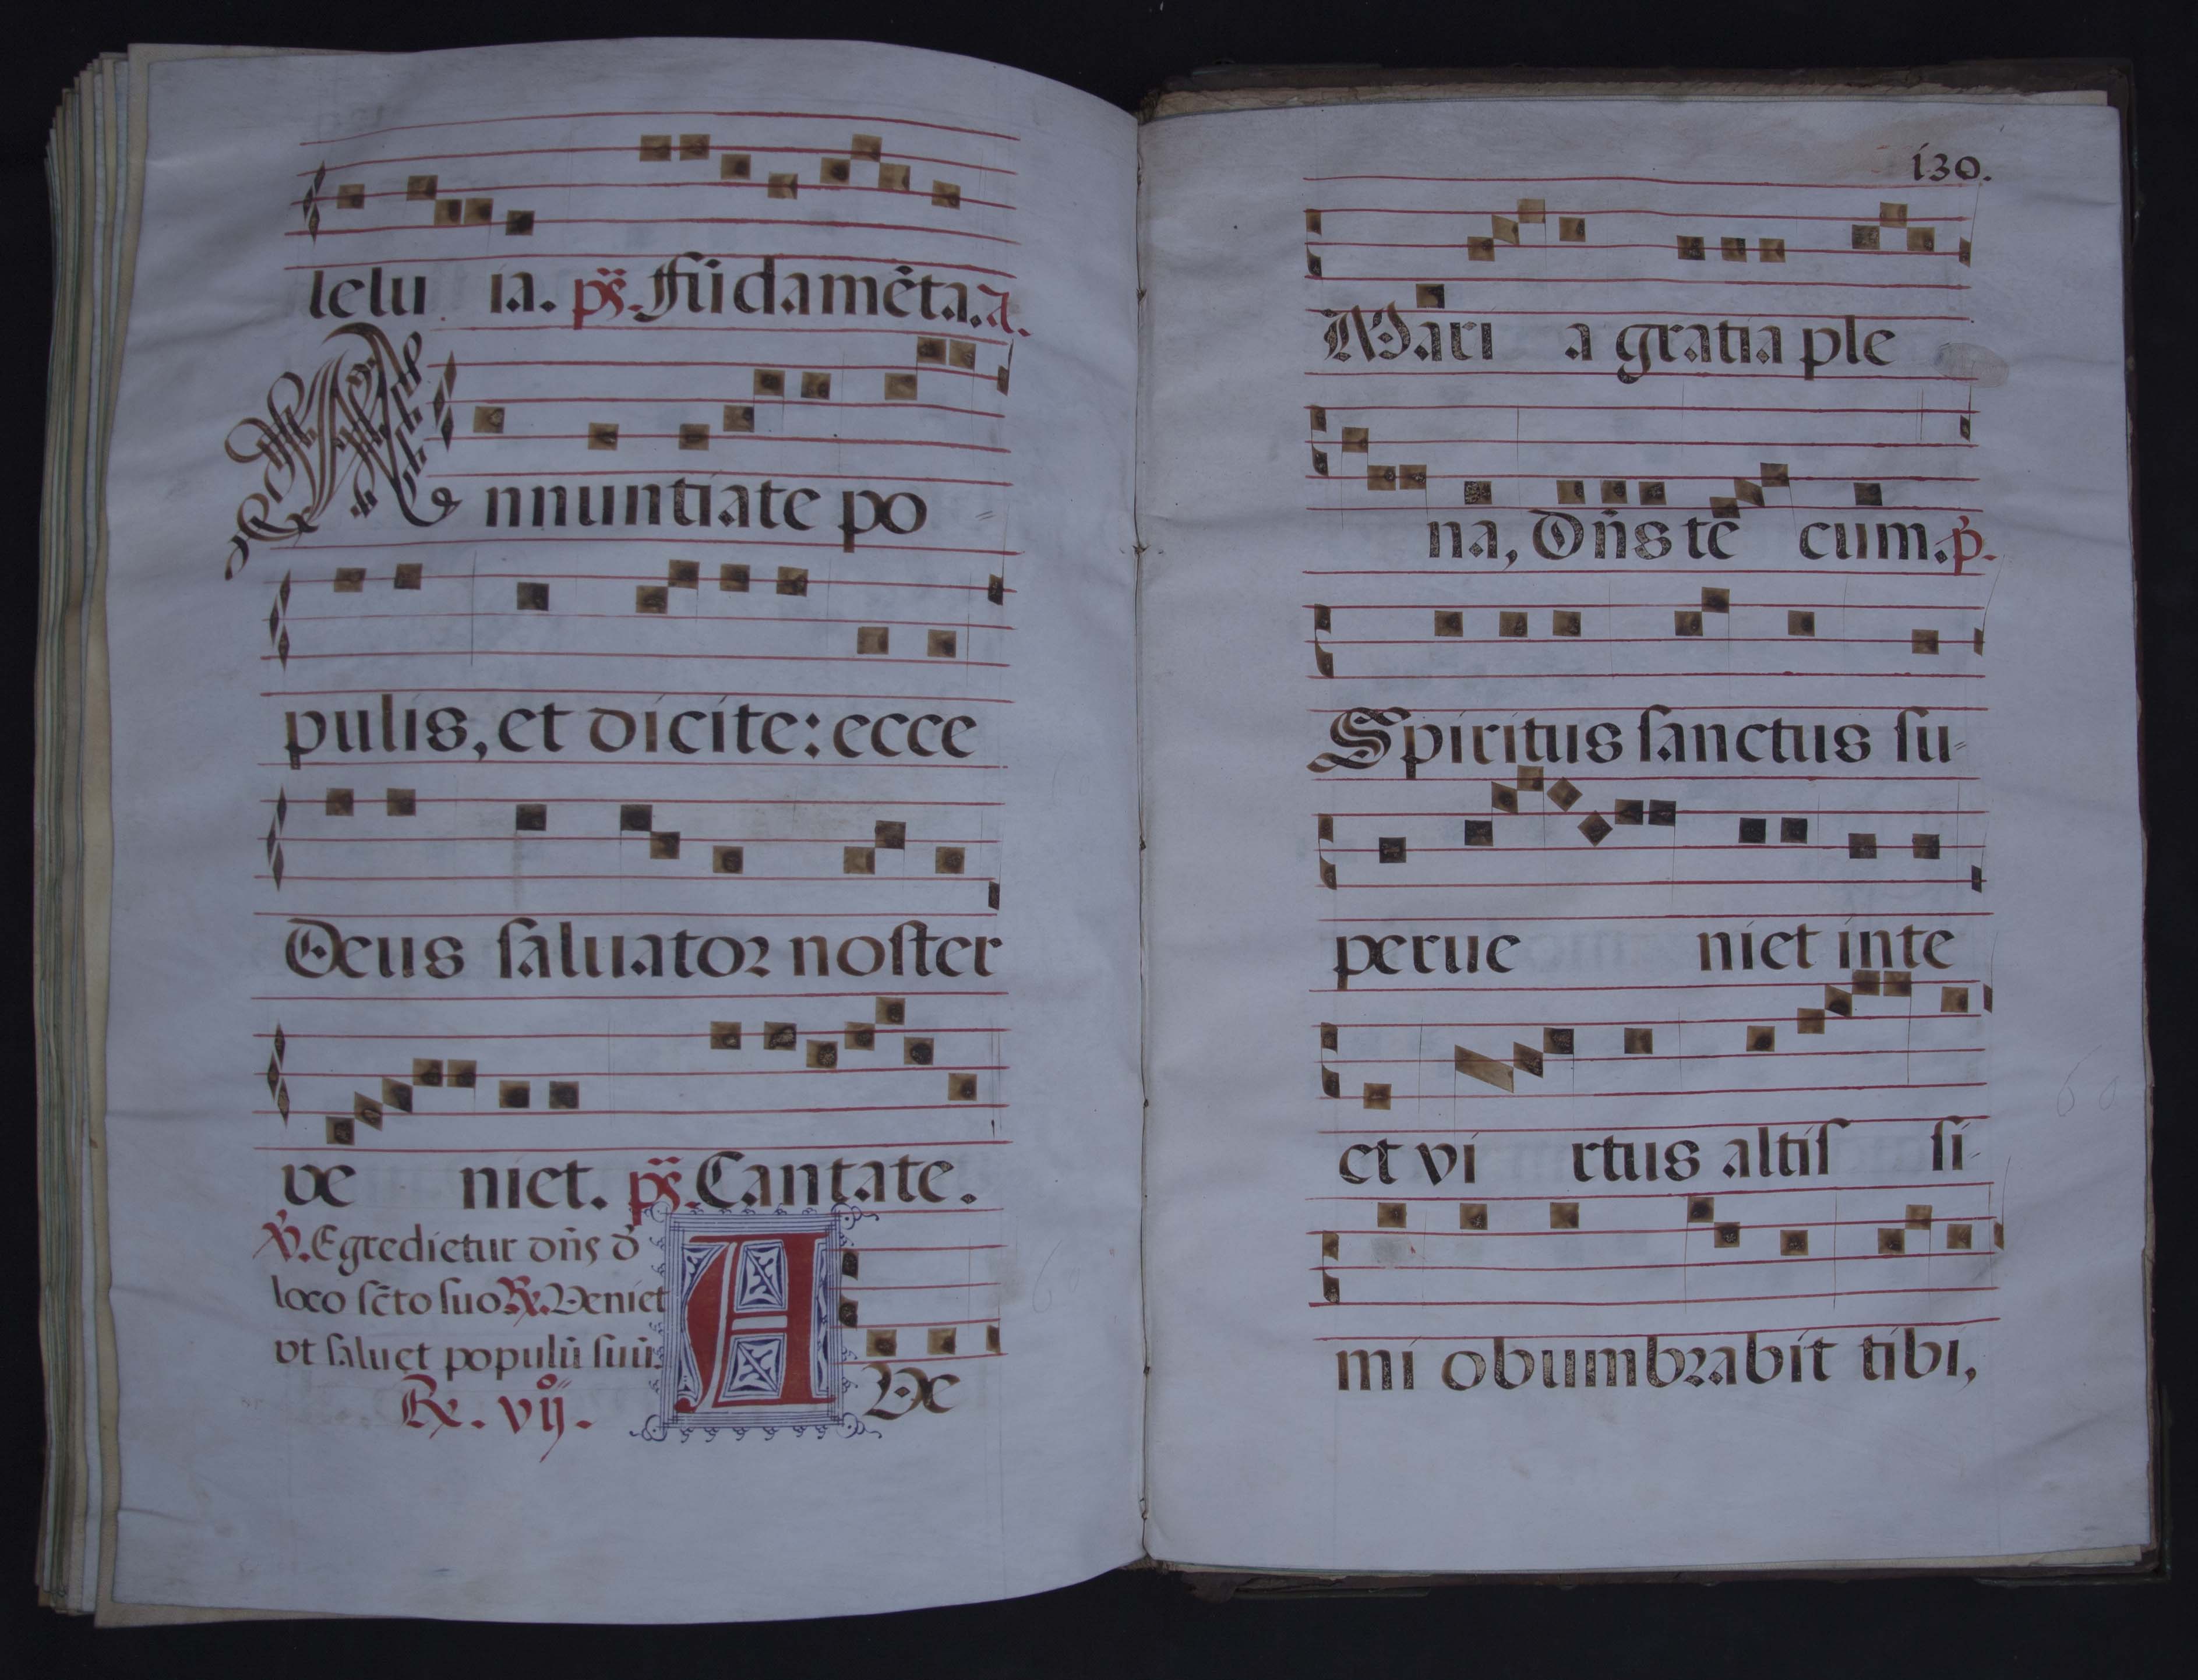 lelu ia. ps. Fũdamẽta. a.
Annuntiate po=
pulis, et dicite: ecce
Deus saluator noster
ve niet. ps. Cantate.
℣. Egredietur dñs d̉
loco sc̃to suo ℟. Veniet
vt saluet populũ suũ.
℟. vij.
A Ve
130.
Mari a gratia ple
na, Dñs te cum. p̉.
Spiritus sanctus su=
perue niet in te
et vi rtus altis si-
mi obumbrabit tibi,